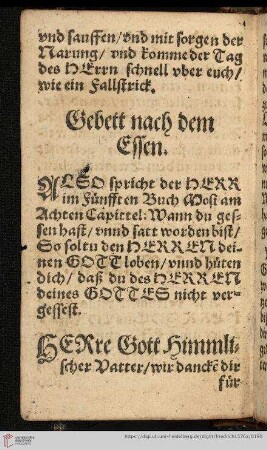 vnd sauffen/vnd mit sorgen der
Narung/ vnd komme der Tag
des HErrn schnell vber euch/
wie ein Fallstrick.
Gebett nach dem
Essen.
ALSO spricht der HERR
im Fünfften Buch Mosi am
Achten Capittel: Wann du ges-
sen hast/ vnnd satt worden bist/
So solt du den HERREN dei-
nen GOTT loben/ vnnd hüten
dich/ daß du des HERREN
deines GOTTES nicht ver-
gessest.
HERre Gott Himmli-
scher Vatter/wir dancke dir
für